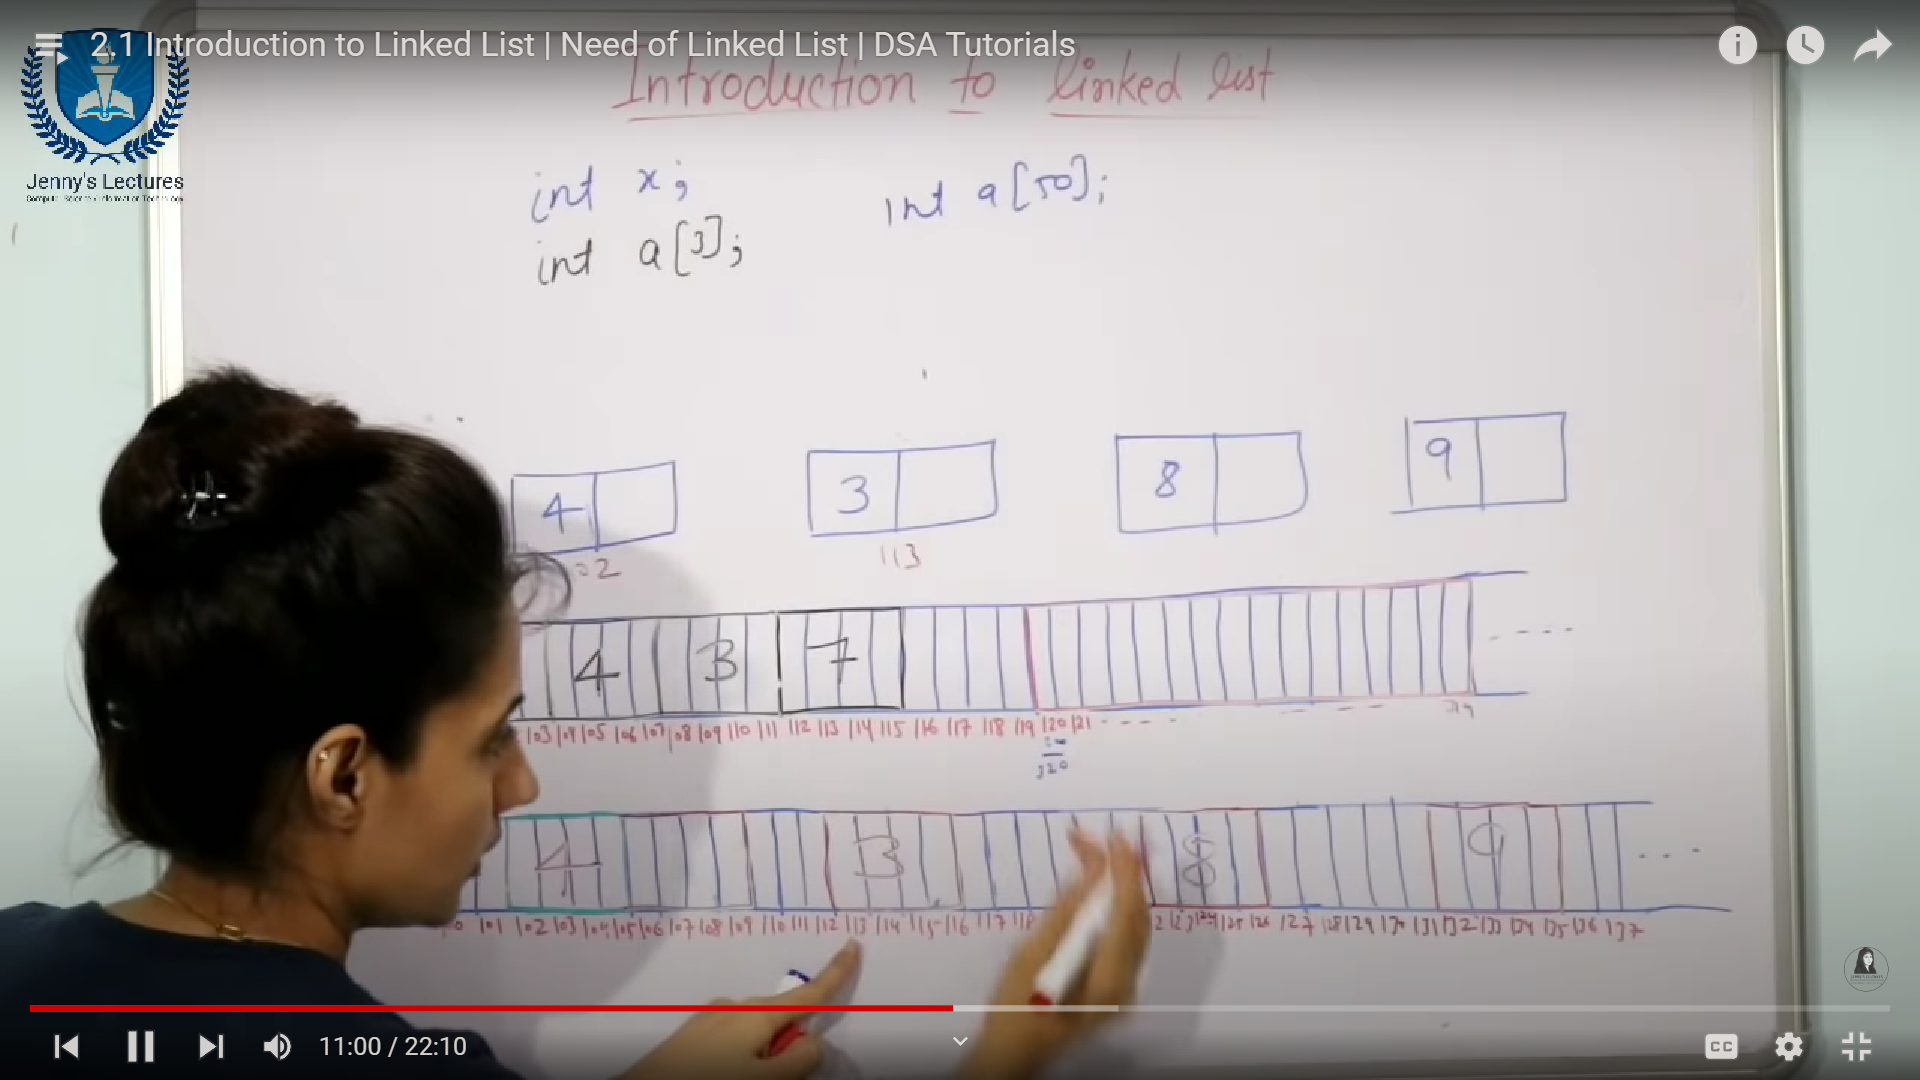 2.1 Introduction to Linked List | Need of Linked List | DSA Tutorials
Introduction to linked list
Jenny's Lectures
int x; int a[50];
int a[3];
4 3 8 9
02 113
4 3 7
103 104 105 106 107 108 109 110 111 112 113 114 115 116 117 118 119 120 121 - - - -
320
4 3 8 9 - - -
101 102 103 104 105 106 107 108 109 110 111 112 113 114 115 116 117 118 123 124 125 126 127 128 129 130 131 132 133 134 135 136 137
11:00 / 22:10
CC